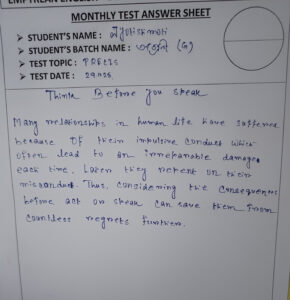 MONTHLY TEST ANSWER SHEET
➤ STUDENT'S NAME :
➤ STUDENT'S BATCH NAME : (G)
➤ TEST TOPIC : PRECIS
➤ TEST DATE :
Think Before you speak
Many relationships in human life have suffered
because of their impulsive conduct which
often lead to an irreparable damages
each time. Later they repent on their
misconduct. Thus, considering the consequences
before act or speak can save them from
countless regrets further.